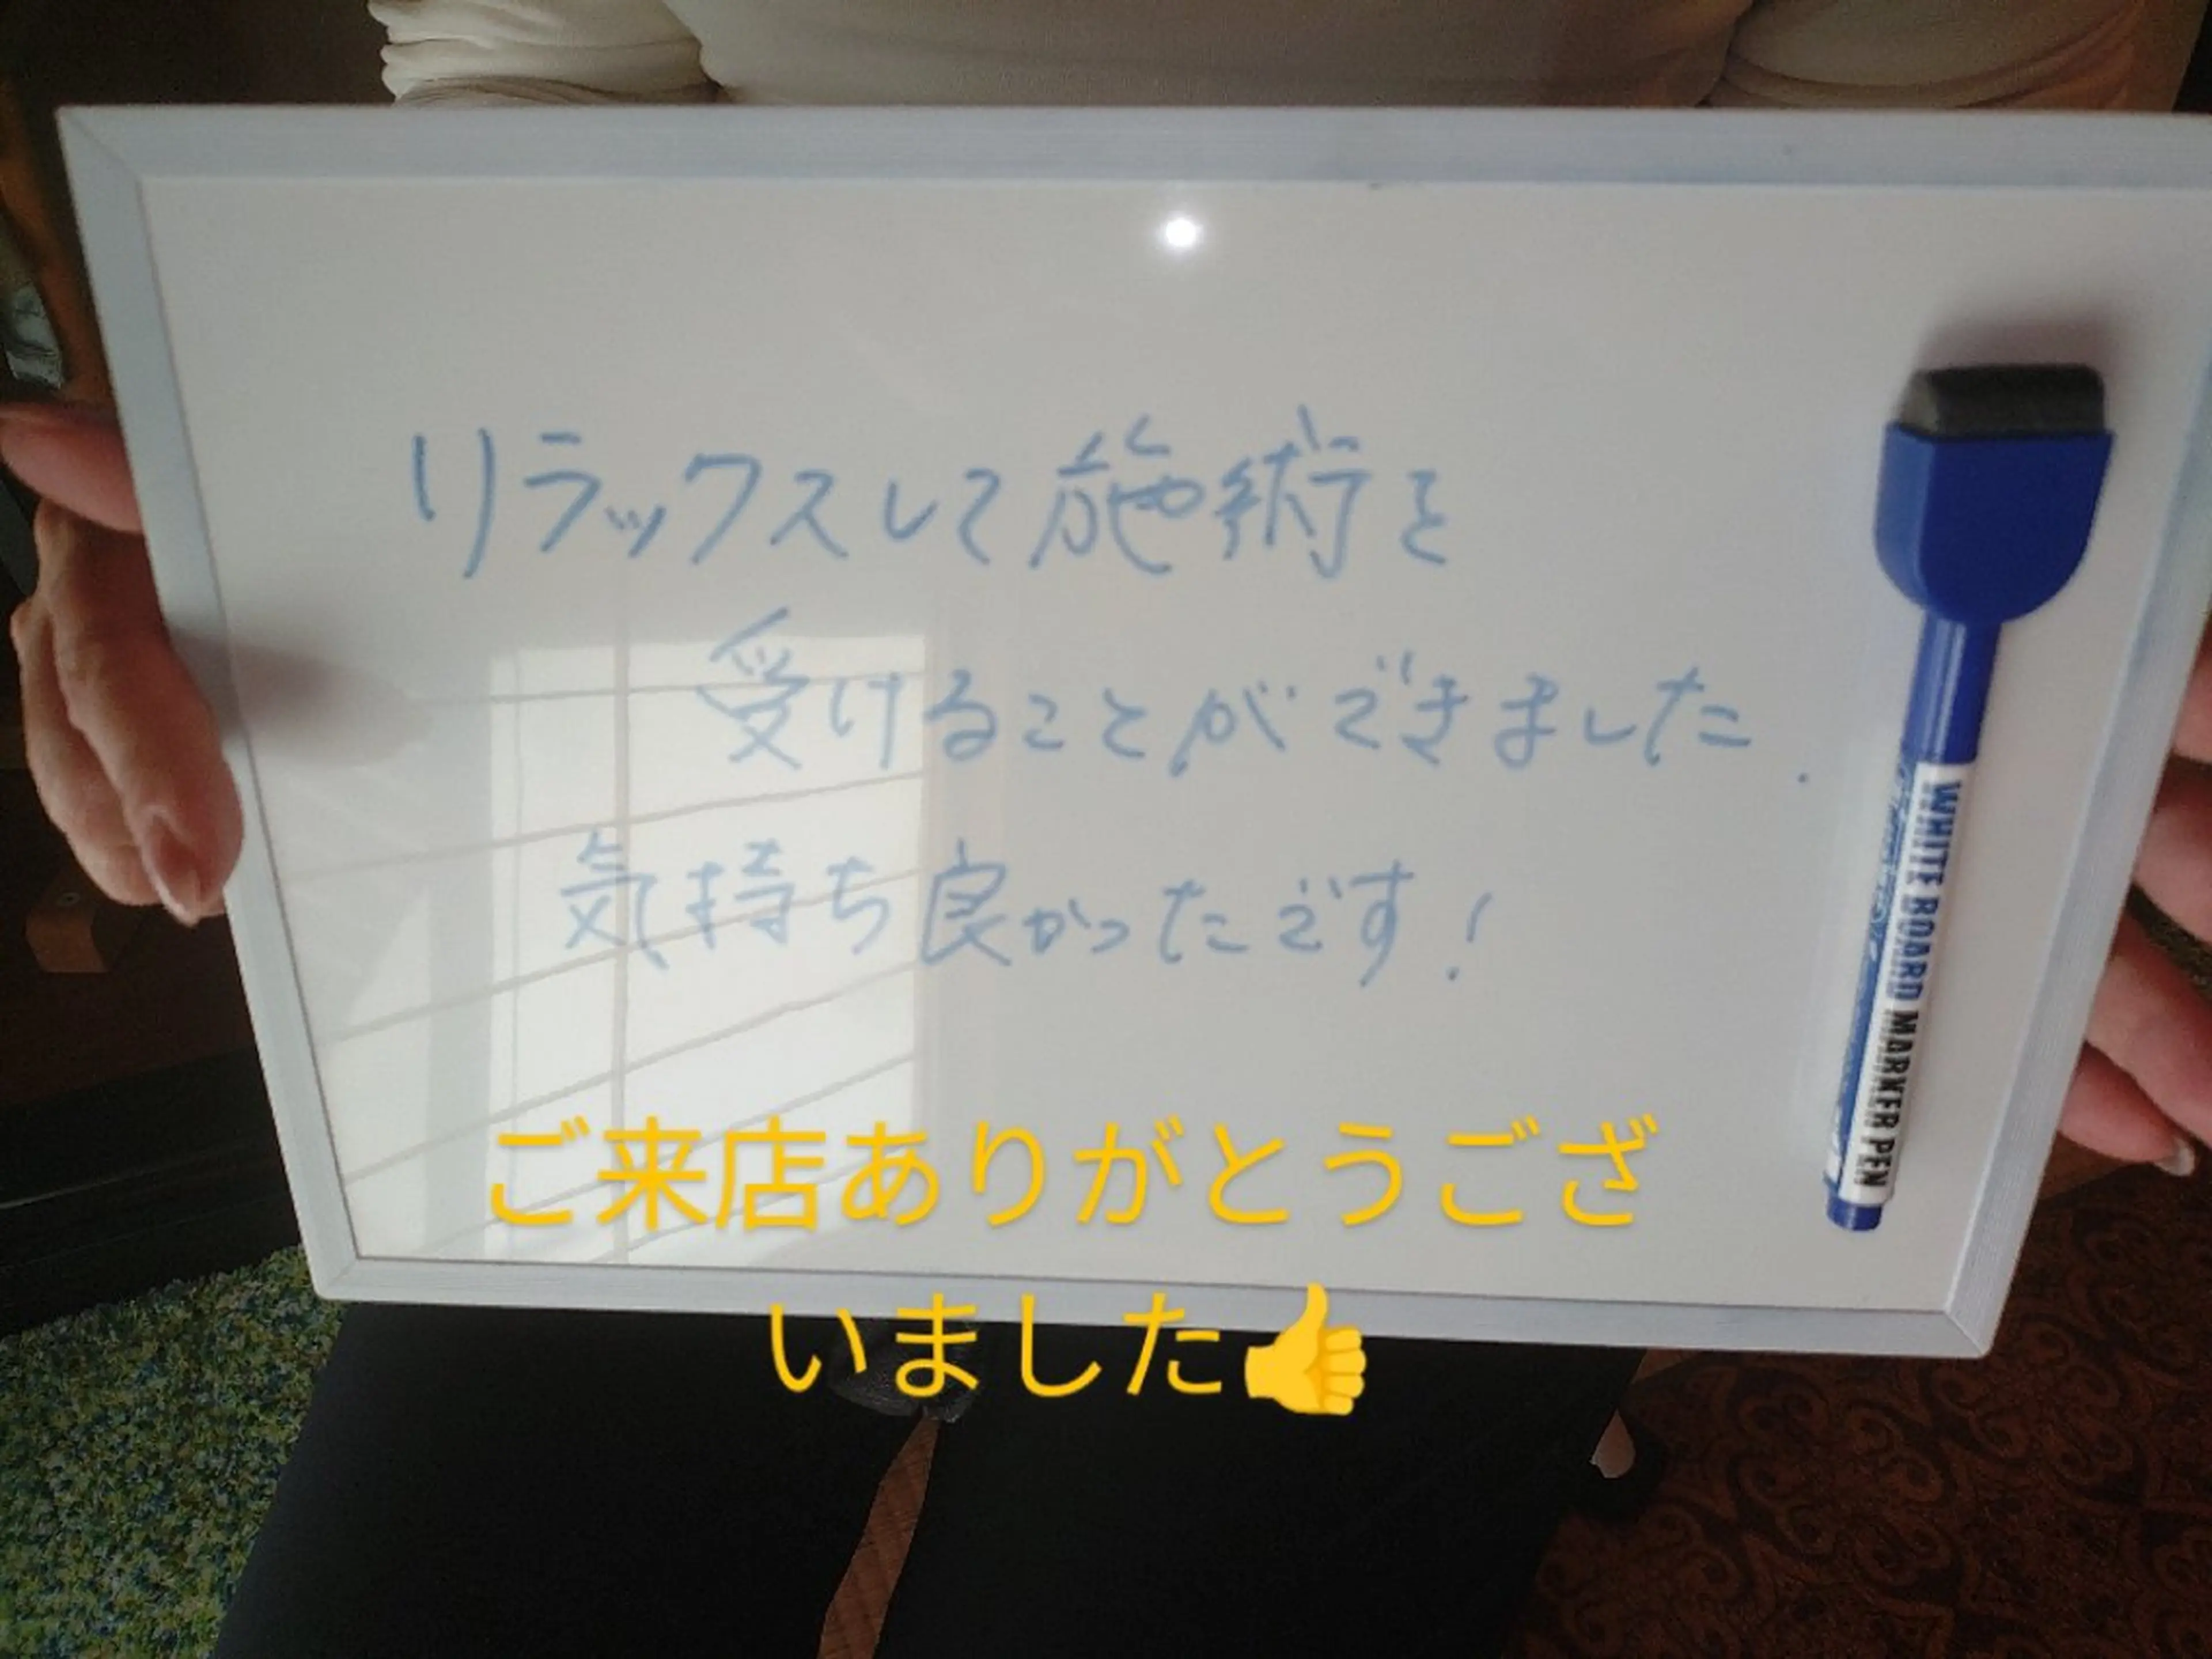 リラックスして施術を
受けることができました.
気持ち良かったです!
WHITE BOARD MARKER PEN
ご来店ありがとうござ
いました👍